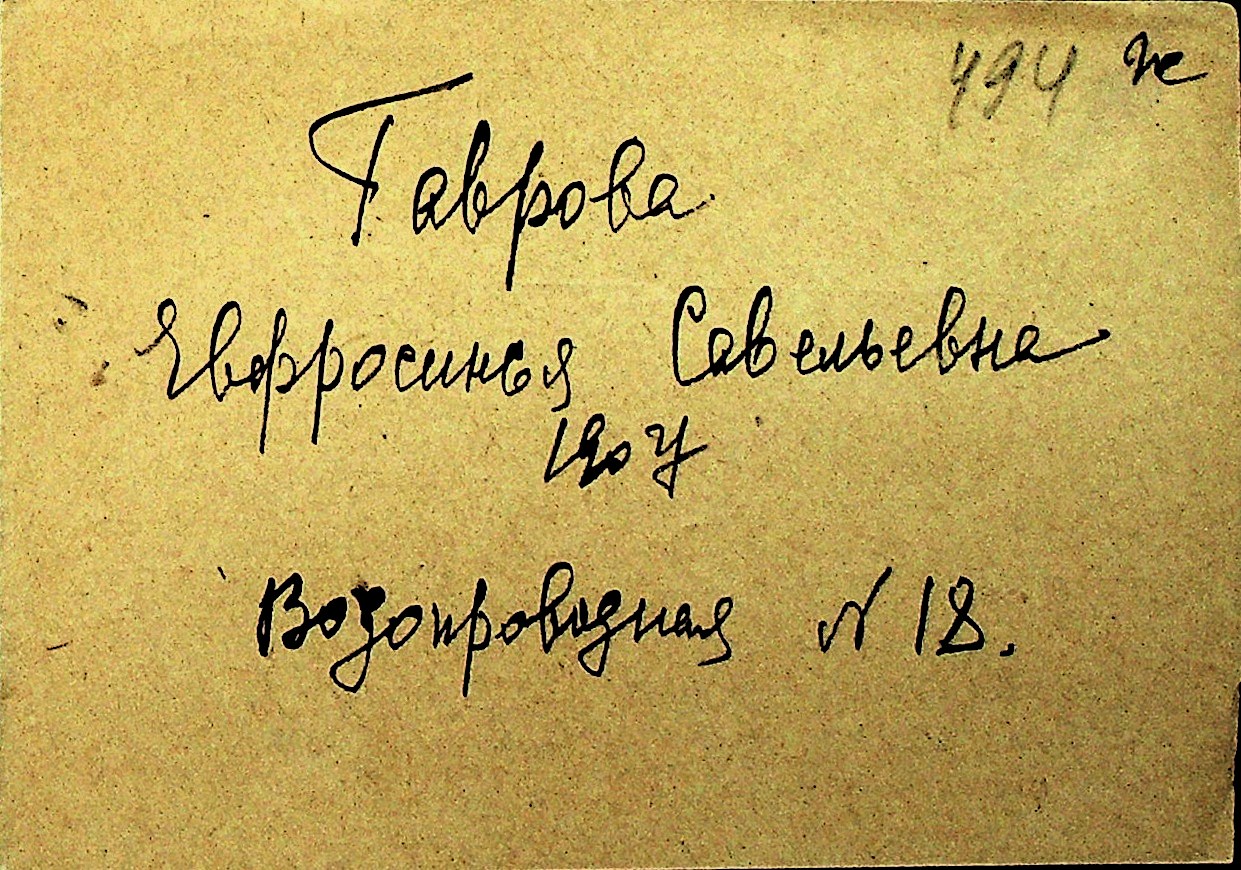 494 же
Гаврова
Евфросинья Савельевна
1907
Водопроводная № 18.